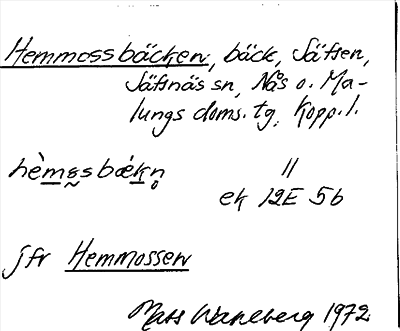 Hemmossbäcken, bäck, Säfsen,
Säfsnäs sn, Nås o. Ma-
lungs doms. tg, Kopp. l.
hèmꞩsbǽkn̥ //
ek 12E 5b
jfr Hemmossen
Mats Wahlberg 1972